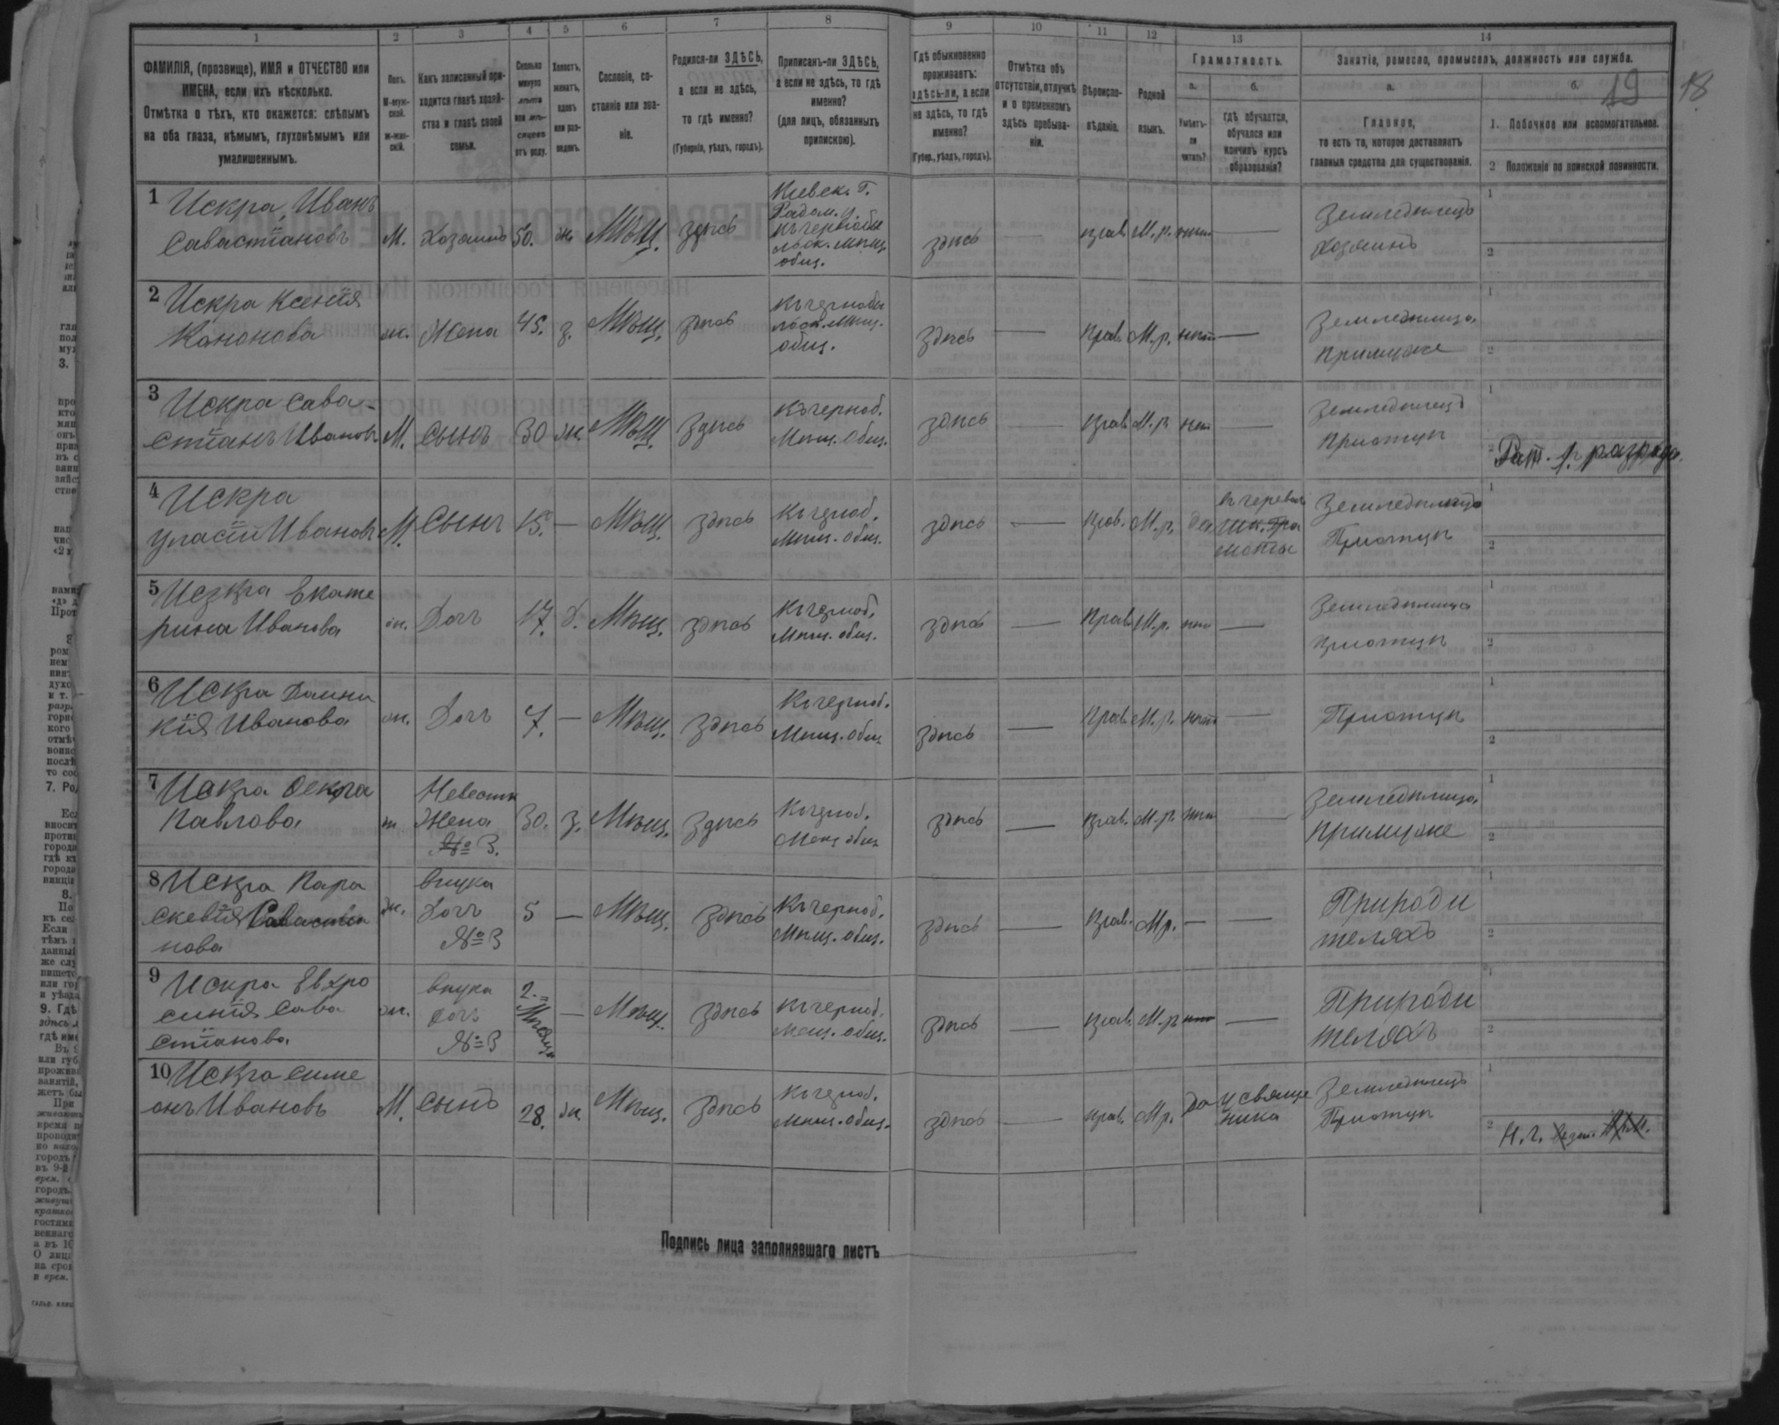 19 18
1 2 3 4 5 6 7 8 9 10 11 12 13 14
ФАМИЛІЯ, (прозвище), ИМЯ и ОТЧЕСТВО или
ИМЕНА, если ихъ нѣсколько.
Отмѣтка о тѣхъ, кто окажется: слѣпымъ
на оба глаза, нѣмымъ, глухонѣмымъ или
умалишеннымъ.
Полъ.
М-муж-
ской.
ж-жен-
скій.
Какъ записанный при-
ходится главѣ хозяй-
ства и главѣ своей
семьи.
Сколько
минуло
лѣтъ
или мѣ-
сяцевъ
отъ роду.
Холостъ,
женатъ,
вдовъ
или раз-
веденъ.
Сословіе, со-
стояніе или зва-
ніе.
Родился-ли ЗДѢСЬ,
а если не здѣсь,
то гдѣ именно?
(Губернія, уѣздъ, городъ).
Приписанъ-ли ЗДѢСЬ,
а если не здѣсь, то гдѣ
именно?
(для лицъ, обязанныхъ
припискою).
Гдѣ обыкновенно
проживаетъ:
здѣсь-ли, а если
не здѣсь, то гдѣ
именно?
(Губер., уѣздъ, городъ).
Отмѣтка объ
отсутствіи, отлучкѣ
и о временномъ
здѣсь пребыва-
ніи.
Вѣроиспо-
вѣданіе.
Родной
языкъ.
Грамотность.
а.
Умѣетъ-
ли
читать?
б.
гдѣ обучается,
обучался или
кончилъ курсъ
образованія?
Занятіе, ремесло, промыселъ, должность или служба.
а.
Главное,
то есть то, которое доставляетъ
главныя средства для существованія.
б.
1. Побочное или вспомогательное.
2 Положеніе по воинской повинности.
1 Искра, Иванъ
Савастіановъ
М. Хозяинъ 50. ж. Мѣщ. здѣсь
Кіевск. Г.
Радом. у.
къ чернобы
льск. мѣщ.
общ.
здѣсь — прав. М.р. нѣт —
Земледѣлецъ
хозяинъ
2 Искра Ксенія
Кононова
ж. Жена 45. з. Мѣщ. здѣсь
Къ чернобы
льск. мѣщ.
общ.
здѣсь — Прав. М.р. нѣт —
Земледѣлица
при мужѣ
3 Искра Сава-
стіанъ Ивановъ
М. Сынъ 30 ж. Мѣщ. здѣсь
Къ черноб.
Мѣщ. Общ.
здѣсь — прав. М.р. нѣт —
Земледѣлецъ
При отцѣ
Рат. 1. разряда.
4 Искра
Уласій Ивановъ
М. Сынъ 15. — Мѣщ. здѣсь
Къ черноб.
Мѣщ. общ.
здѣсь — прав. М.р. да
Земледѣлецъ
При отцѣ
5 Искра Екате
рина Иванова
ж. Дочь 17. д. Мѣщ. здѣсь
Къ черноб.
Мѣщ. общ.
здѣсь — Прав. М.р. нѣт —
Земледѣлица
при отцѣ
6 Искра Домни
кія Иванова
ж. Дочь 7. — Мѣщ. здѣсь
Къ черноб.
Мѣщ. Общ.
здѣсь — Прав. М.р. нѣт —
При отцѣ
7 Искра Фекла
Павлова
ж
Невестк
Жена
№ 3.
30. з. Мѣщ. здѣсь
Къ черноб.
Мѣщ общ
здѣсь — прав. М.р. нѣт —
Земледѣлица
при мужѣ
8 Искра Пара
скевія Савастіа
нова
ж.
внука
Дочь
№ 3
5 — Мѣщ. здѣсь
Къ черноб.
Мѣщ. общ.
здѣсь — прав. М.р. — —
При роди
теляхъ
9 Искра Евхро
синія Сава
стіанова
ж.
внука
Дочь
№ 3
2.
Мѣсяца
— Мѣщ. здѣсь
Къ черноб.
мѣщ. общ.
здѣсь — прав. М.р. нѣт —
При роди
теляхъ
10 Искра Симе
онъ Ивановъ
М. Сынъ 28. ж. Мѣщ. здѣсь
Къ черноб.
Мѣщ. общ.
здѣсь — прав. М.р. да
у свяще
ника
Земледѣлецъ
При отцѣ
Подпись лица заполнявшаго листъ